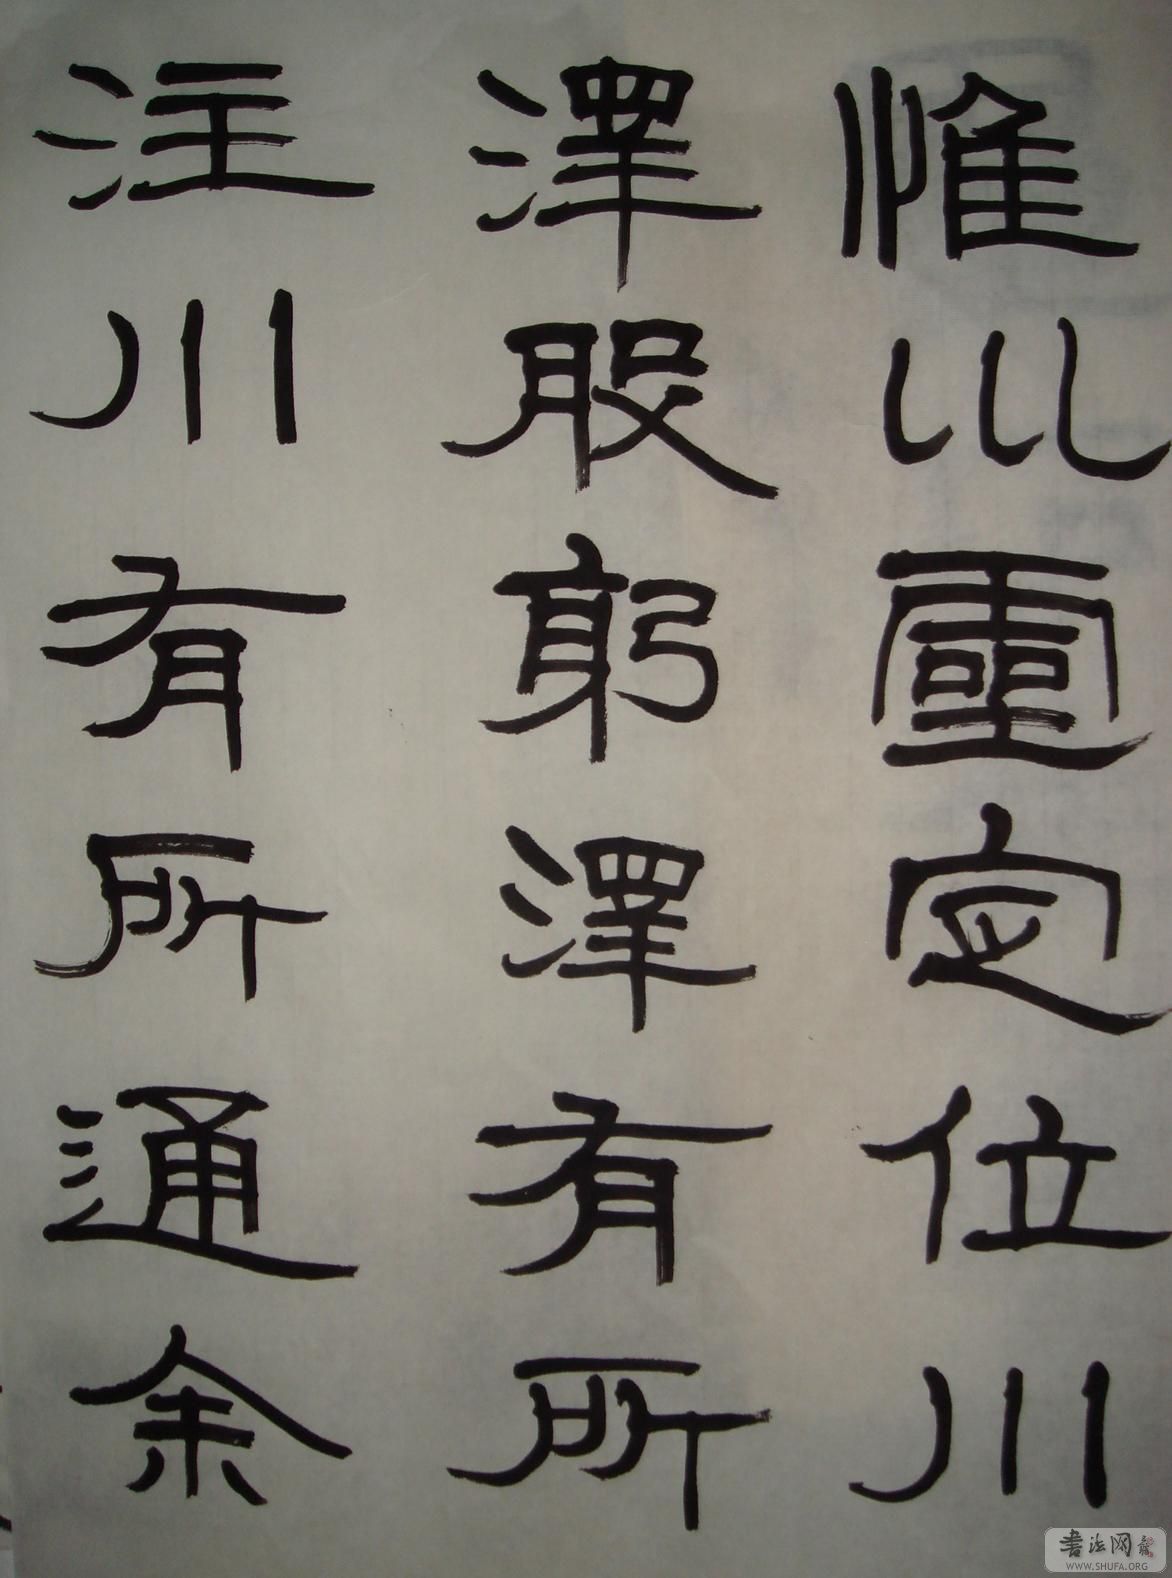 惟巛靈定位川
澤股躬澤有所
注川有所通余
書法网
WWW.SHUFA.ORG